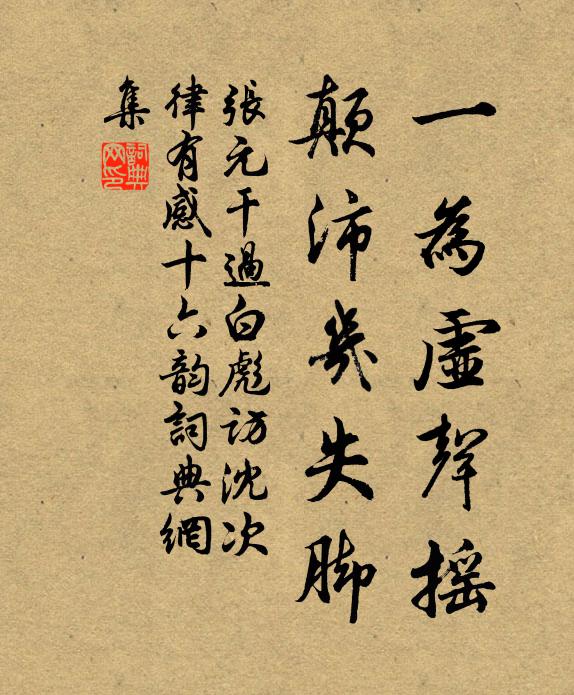 一為虛聲搖
顛沛幾失腳
張元干過白彪訪沈次
律有感十六韵詞典網
集
詞典
网印